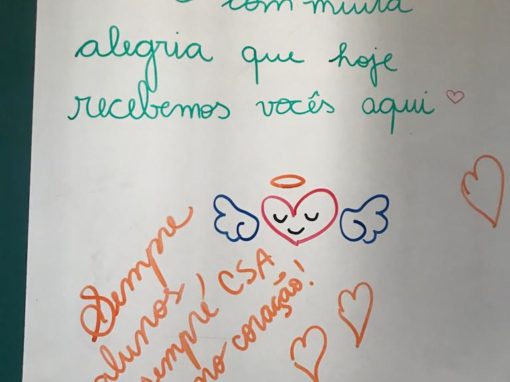 É com muita
alegria que hoje
recebemos vocês aqui
Sempre
alunos,
sempre CSA
no coração!